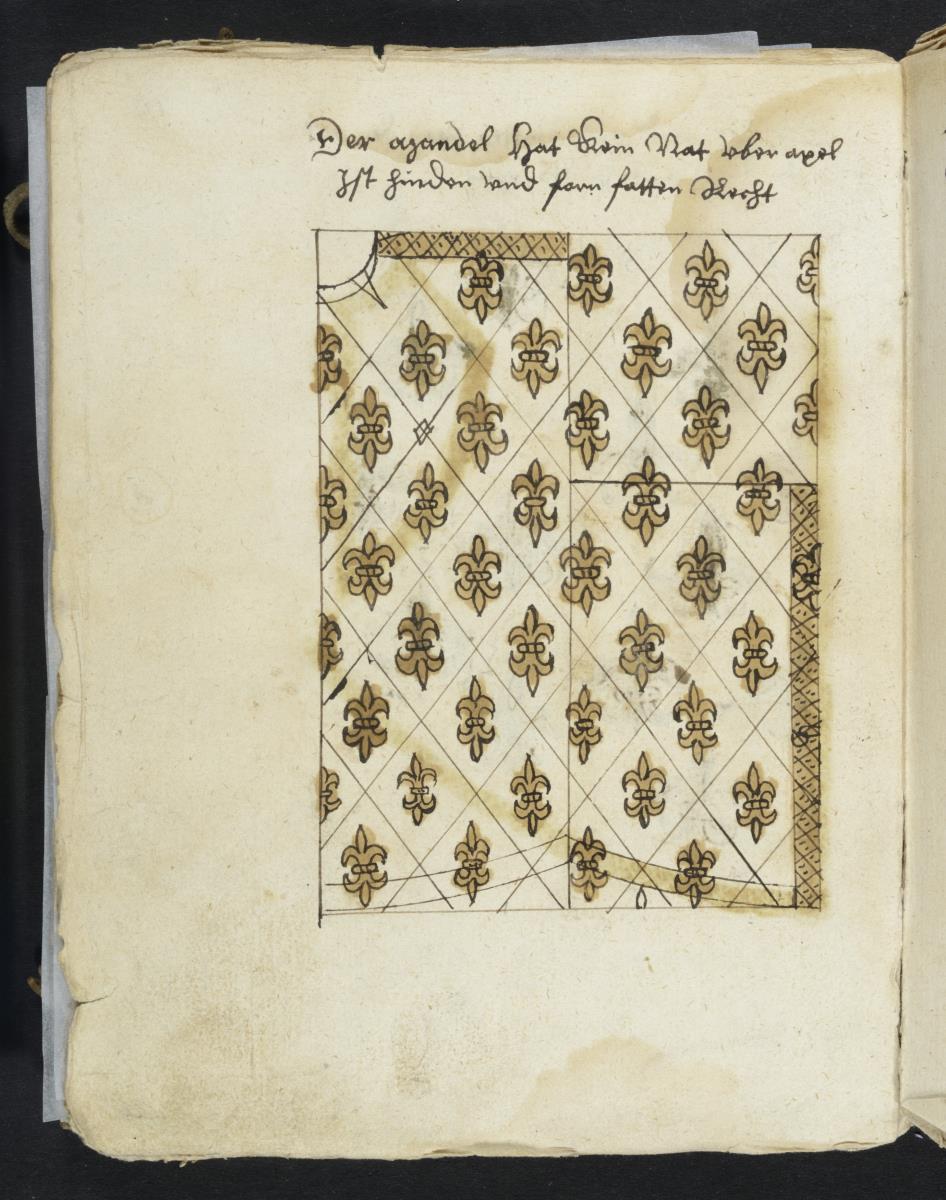 Der mandel Hat Kein Nat vber axel
Ist hinden vnd forn fatten Recht